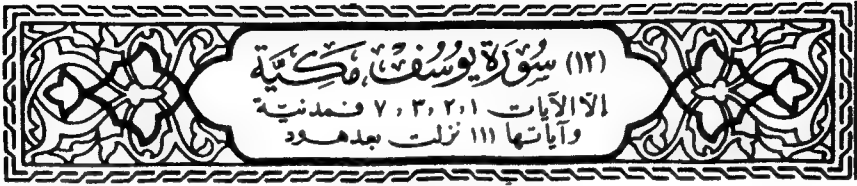 (١٢) سُورَة يُوسُف مَكيَّة
إلا الآيات ١ ، ٢ ، ٣ ، ٧ فمدنية
وآياتها ١١١ نزلت بعد هود